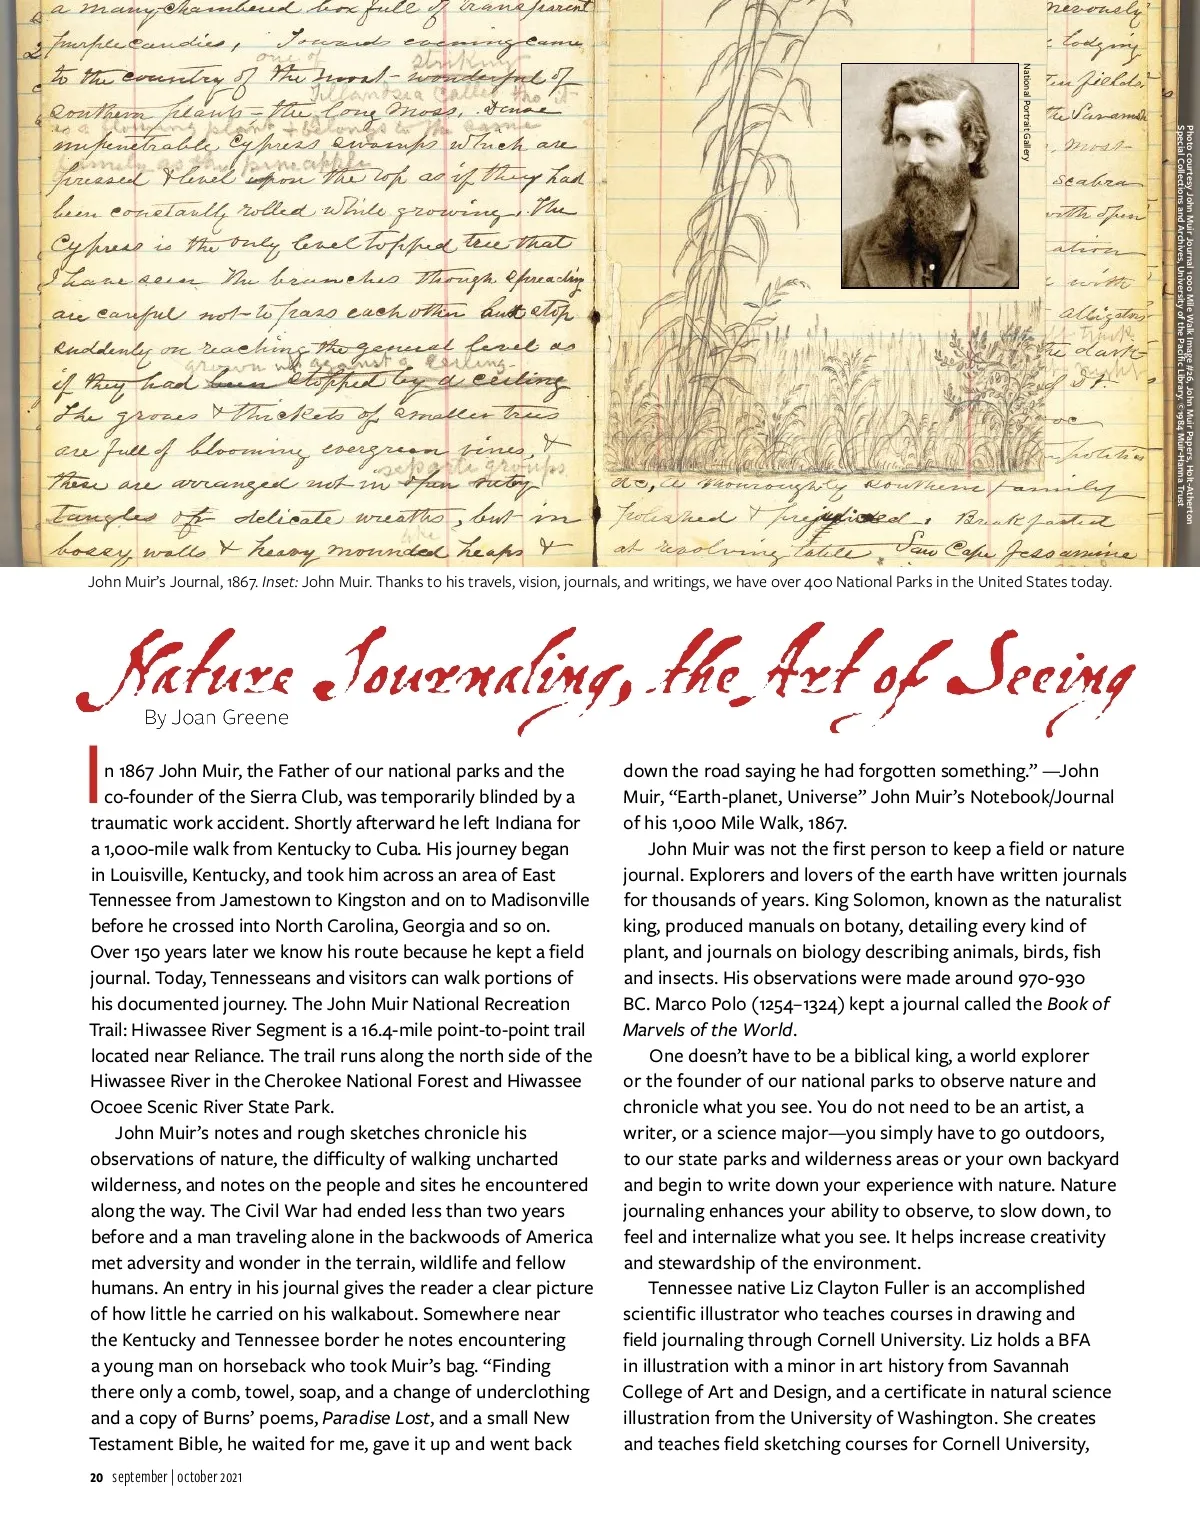 a many chambered box full of transparent
purple candies, Towards evening came
one of striking
to the country of the most wonderful of
Tillandsia called tho it
southern plants – the long moss. Dense
is a flowering plant & belongs to the same
impenetrable cypress swamps which are
family as the pineapple
pressed & level upon the top as if they had
been constantly rolled while growing. The
Cypress is the only level topped tree that
I have seen. The branches though spreading
are careful not to pass each other but stop
suddenly on reaching the general level as
grown up against a ceiling
if they had been stopped by a ceiling
The groves & thickets of smaller trees
are full of blooming evergreen vines, &
separate groups
these are arranged not in
tangles of delicate wreaths, but in
bossy walls & heavy mounded heaps &
nervously
lodging
fields,
the
most
scabra
with open
ation
with
alligators
the dark
&c, a thoroughly southern family
polished & prejudiced. Breakfasted
at revolving table. Saw Cape Jessamine
National Portrait Gallery
Photo courtesy John Muir Journal 1000 Mile Walk Image #26, John Muir Papers, Holt-Atherton
Special Collections and Archives, University of the Pacific Library. ©1984 Muir-Hanna Trust
John Muir’s Journal, 1867. Inset: John Muir. Thanks to his travels, vision, journals, and writings, we have over 400 National Parks in the United States today.
Nature Journaling, the Art of Seeing
By Joan Greene
In 1867 John Muir, the Father of our national parks and the
co-founder of the Sierra Club, was temporarily blinded by a
traumatic work accident. Shortly afterward he left Indiana for
a 1,000-mile walk from Kentucky to Cuba. His journey began
in Louisville, Kentucky, and took him across an area of East
Tennessee from Jamestown to Kingston and on to Madisonville
before he crossed into North Carolina, Georgia and so on.
Over 150 years later we know his route because he kept a field
journal. Today, Tennesseans and visitors can walk portions of
his documented journey. The John Muir National Recreation
Trail: Hiwassee River Segment is a 16.4-mile point-to-point trail
located near Reliance. The trail runs along the north side of the
Hiwassee River in the Cherokee National Forest and Hiwassee
Ocoee Scenic River State Park.
John Muir’s notes and rough sketches chronicle his
observations of nature, the difficulty of walking uncharted
wilderness, and notes on the people and sites he encountered
along the way. The Civil War had ended less than two years
before and a man traveling alone in the backwoods of America
met adversity and wonder in the terrain, wildlife and fellow
humans. An entry in his journal gives the reader a clear picture
of how little he carried on his walkabout. Somewhere near
the Kentucky and Tennessee border he notes encountering
a young man on horseback who took Muir’s bag. “Finding
there only a comb, towel, soap, and a change of underclothing
and a copy of Burns’ poems, Paradise Lost, and a small New
Testament Bible, he waited for me, gave it up and went back
down the road saying he had forgotten something.” —John
Muir, “Earth-planet, Universe” John Muir’s Notebook/Journal
of his 1,000 Mile Walk, 1867.
John Muir was not the first person to keep a field or nature
journal. Explorers and lovers of the earth have written journals
for thousands of years. King Solomon, known as the naturalist
king, produced manuals on botany, detailing every kind of
plant, and journals on biology describing animals, birds, fish
and insects. His observations were made around 970-930
BC. Marco Polo (1254–1324) kept a journal called the Book of
Marvels of the World.
One doesn’t have to be a biblical king, a world explorer
or the founder of our national parks to observe nature and
chronicle what you see. You do not need to be an artist, a
writer, or a science major—you simply have to go outdoors,
to our state parks and wilderness areas or your own backyard
and begin to write down your experience with nature. Nature
journaling enhances your ability to observe, to slow down, to
feel and internalize what you see. It helps increase creativity
and stewardship of the environment.
Tennessee native Liz Clayton Fuller is an accomplished
scientific illustrator who teaches courses in drawing and
field journaling through Cornell University. Liz holds a BFA
in illustration with a minor in art history from Savannah
College of Art and Design, and a certificate in natural science
illustration from the University of Washington. She creates
and teaches field sketching courses for Cornell University,
20 september | october 2021